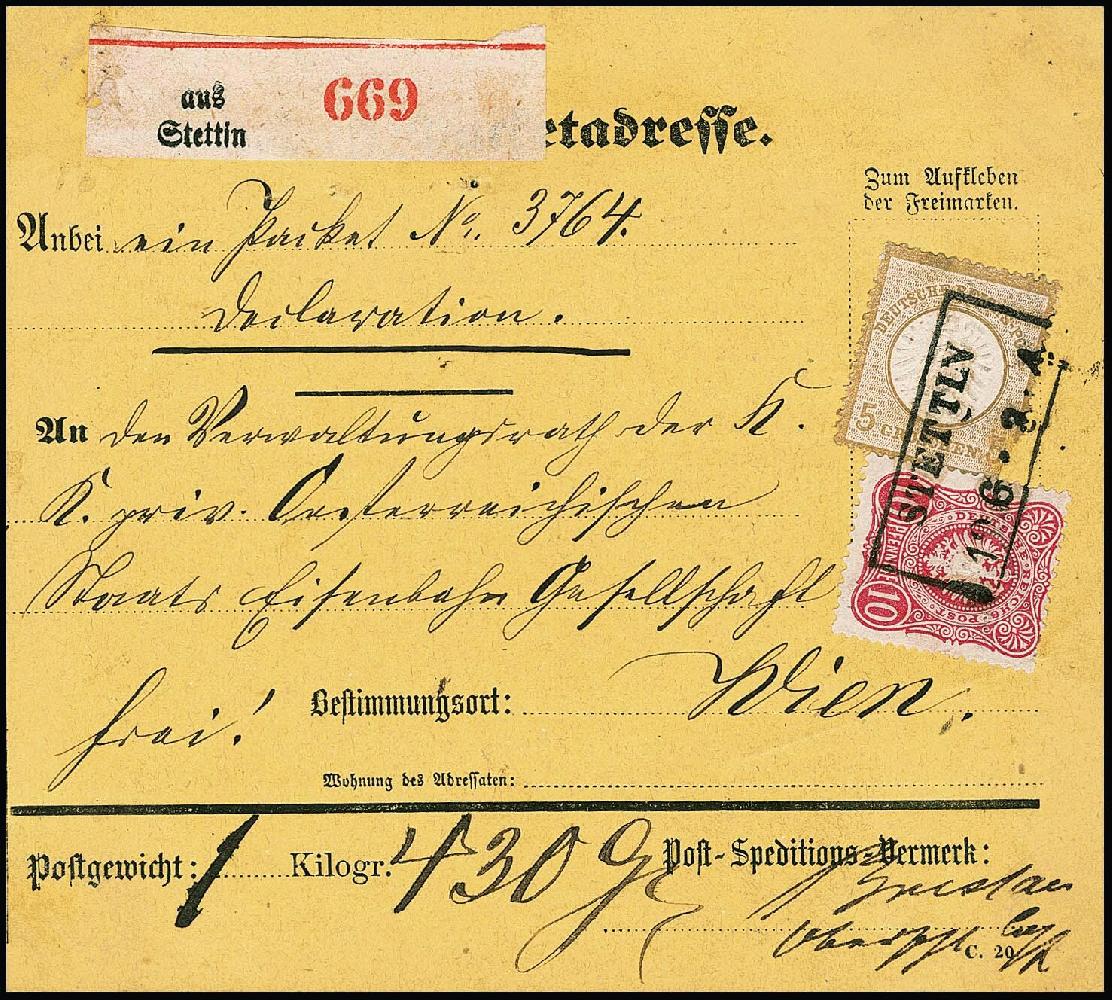 aus
Stettin
669
etadresse.
Zum Aufkleben
der Freimarken.
Anbei ein Packet No. 3764.
Declaration.
An den Verwaltungsrath der K.
K. priv. Oesterreichischen
Staats Eisenbahn Gesellschaft
Bestimmungsort: Wien.
frei!
Wohnung des Adressaten:
5
10
STETTIN
Postgewicht: 1 Kilogr. 430 g
Post-Speditions-Vermerk:
C. 20